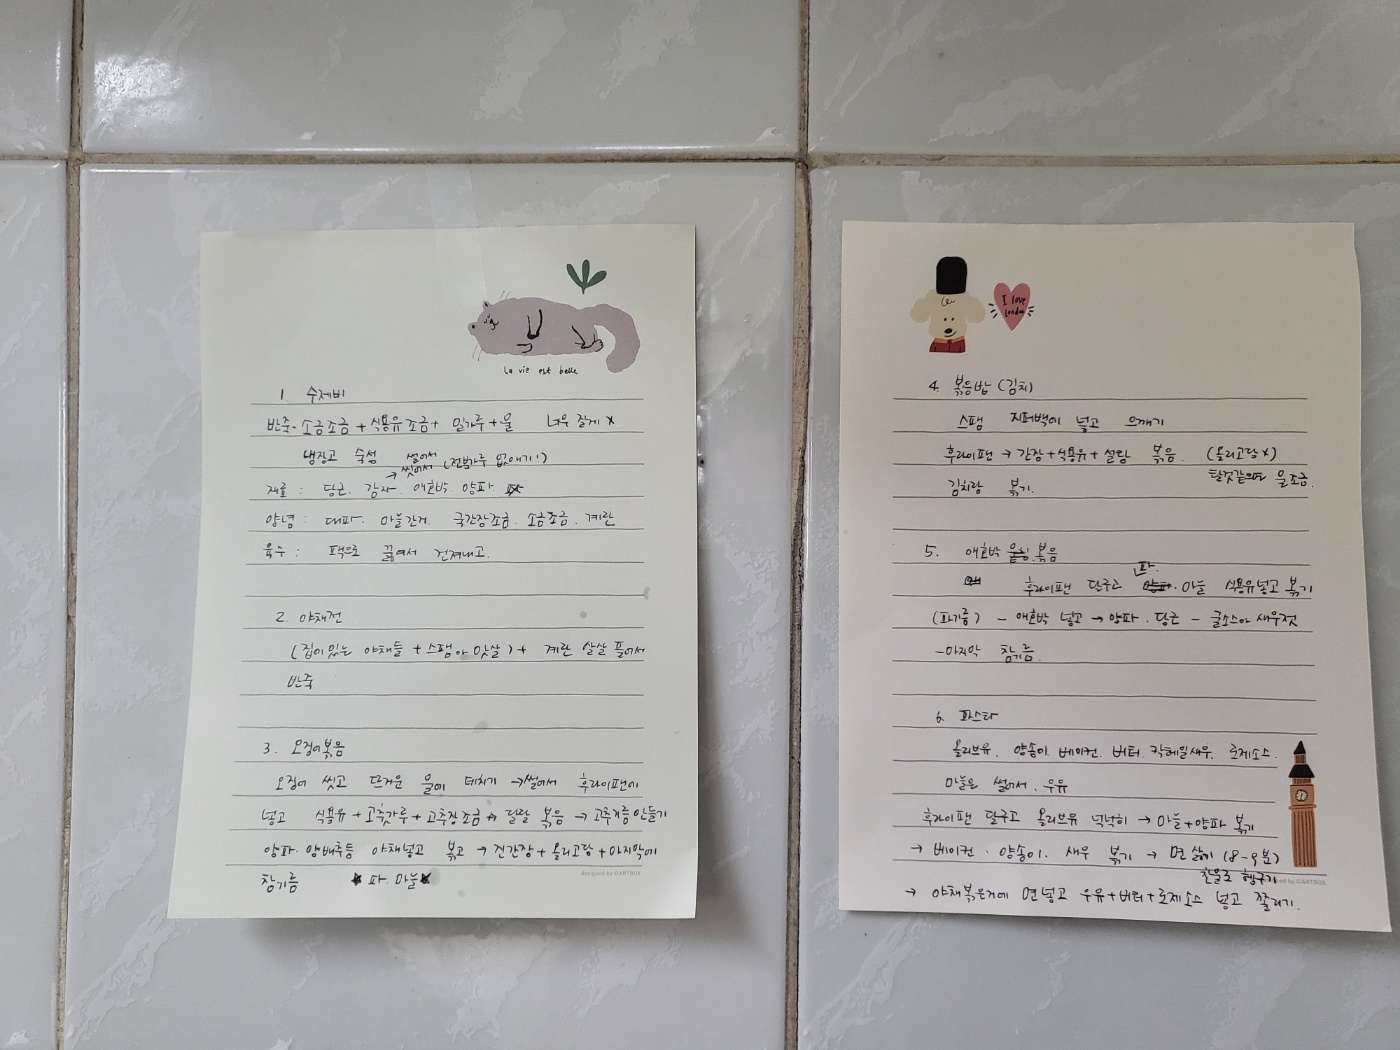 La vie est belle
1. 수제비
반죽 - 소금조금 + 식용유 조금 + 밀가루 + 물 너무 질게 x
냉장고 숙성 썰어서
→ 씻어서 (전분가루 없애기!)
재료 : 당근. 감자. 애호박. 양파
양념 : 대파. 마늘간거. 국간장조금. 소금조금. 계란
육수 : 팩으로 끓여서 건져내고.
2. 야채전
(집에있는 야채들 + 스팸 or 맛살) + 계란 살살 풀어서
반죽
3. 오징어볶음
오징어 씻고 뜨거운 물에 데치기 → 썰어서 후라이팬에
넣고 식용유 + 고춧가루 + 고추장조금 → 달달 볶음 → 고추기름만들기
양파. 양배추등 야채넣고 볶고 → 진간장 + 올리고당 + 마지막에
참기름 파. 마늘
designed by ©ARTBOX
I love London
4. 볶음밥 (김치)
스팸 지퍼백에 넣고 으깨기
후라이팬 → 간장 + 식용유 + 설탕 볶음. (올리고당x)
탈것같으면 물조금.
김치랑 볶기.
5. 애호박 볶음
파.
후라이팬 달구고 마늘 식용유넣고 볶기
(파기름) - 애호박 넣고 → 양파. 당근 - 굴소스 or 새우젓
- 마지막 참기름.
6. 파스타
올리브유. 양송이. 베이컨. 버터. 칵테일새우. 로제소스.
마늘을 썰어서. 우유
후라이팬 달구고 올리브유 넉넉히 → 마늘 + 양파 볶기
→ 베이컨. 양송이. 새우 볶기 → 면 삶기 (8-9분)
찬물로 헹구기
designed by ©ARTBOX
→ 야채볶은거에 면넣고 우유 + 버터 + 로제소스 넣고 쫄이기.